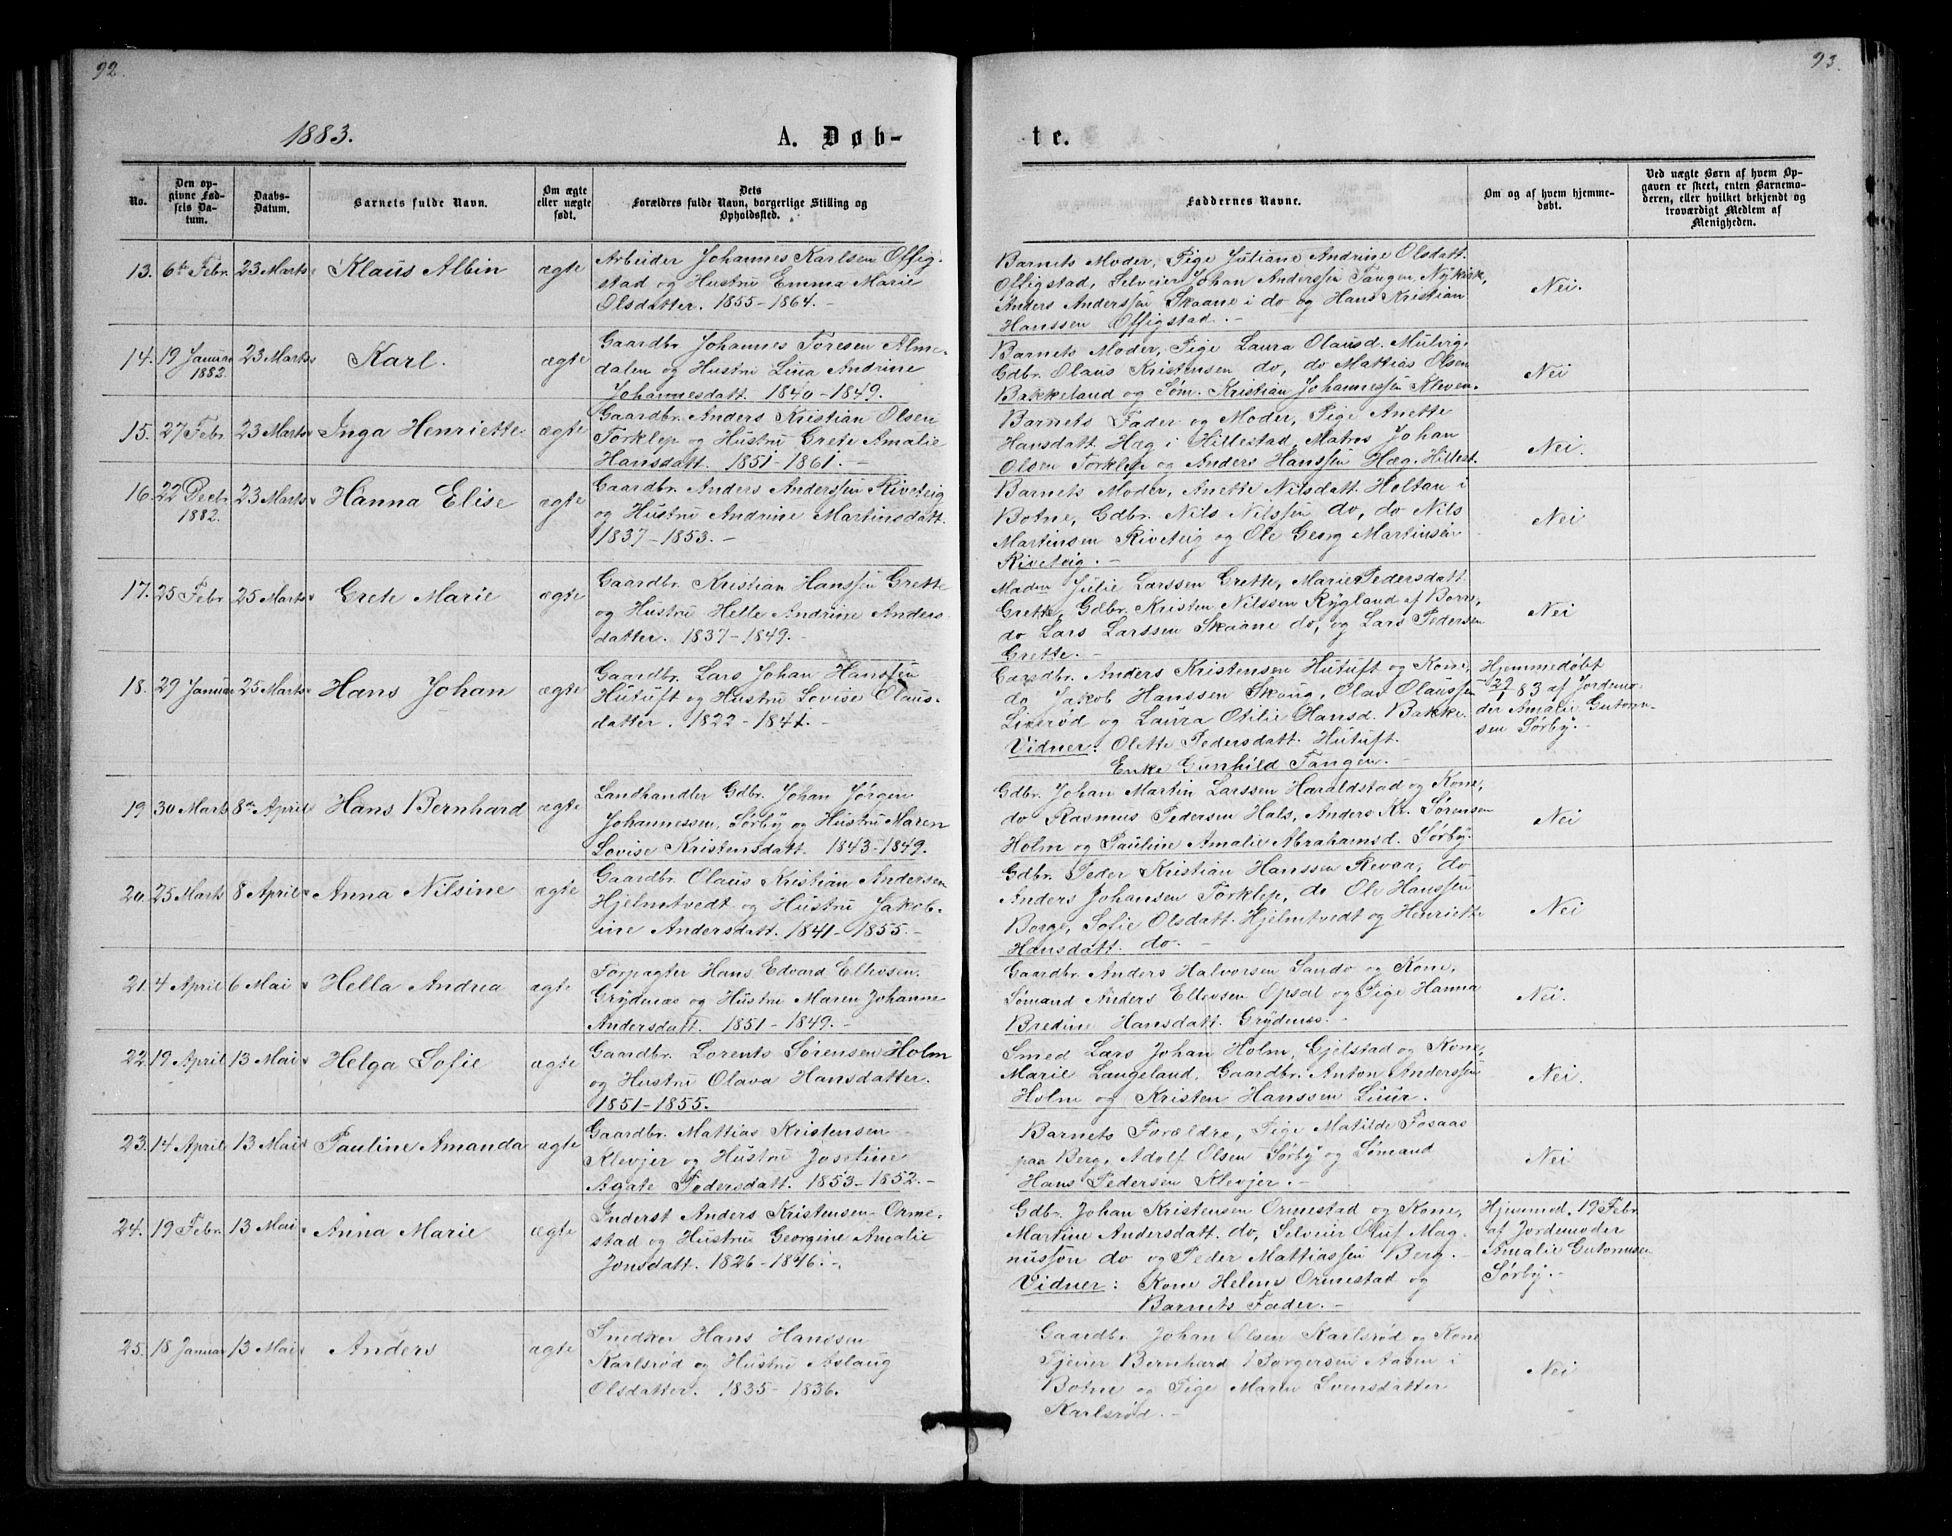 92.
93.
1883.
A. Døb-
te.
No.
Den op-
givne Fød-
sels Da-
tum.
Daabs-
Datum.
Barnets fulde Navn.
Om ægte
eller uægte
født.
Dets
Forældres fulde Navn, borgerlige Stilling og
Opholdssted.
Faddernes Navne.
Om og af hvem hjemme-
døbt.
Ved uægte Børn af hvem Op-
gaven er skeet, enten Barnemo-
deren, eller hvilket bekjendt og
troværdigt Medlem af
Menigheden.
13. 6te Febr. 23 Marts Klaus Albin ægte
Arbeider Johannes Karlsen Offig-
stad og Hustru Emma Marie
Olsdatter. 1855-1864.-
Barnets Moder, Pige Juliane Andrine Olsdatt.
Offigstad, Selveier Johan Anderssen Tangen, Nykirk,
Anders Anderssen Skaane i do og Hans Kristian
Hanssen Offigstad.-
Nei.
14. 19 Januar 23 Marts Karl. ægte
1882.
Gaardbr. Johannes Toresen Alme-
dalen og Hustru Lina Andrine
Johannesdatt. 1840-1849.
Barnets Moder, Pige Laura Olausd. Mulvig.
Gdbr. Olaus Kristensen do, do Mattias Olsen
Bakkeland og Søm. Kristian Johannessen Kleven.
Nei
15. 27 Febr. 23 Marts Inga Henriette ægte
Gaardbr. Anders Kristian Olsen
Torklep og Hustru Grete Amalie
Hansdatt. 1851-1861.-
Barnets Fader og Moder, Pige Anette
Hansdatt. Hæg i Hillestad, Matros Johan
Olsen Torklep og Anders Hanssen Hæg, Hillest.
Nei.
16. 22 Decbr. 23 Marts Hanna Elise ægte
1882.
Gaardbr. Anders Anderssen Riveteig
og Hustru Andrine Martinsdatt.
1837-1853.-
Barnets Moder, Anette Nilsdatt. Holtan i
Botne, Gdbr. Nils Nilssen do, do Nils
Martinsen Riveteig og Ole Georg Martinsen
Riveteig.-
Nei
17. 25 Febr. 25 Marts Grete Marie ægte
Gaardbr. Kristian Hanssen Grette
og Hustru Helle Andrine Anders-
datter. 1837-1849.-
Maden Julie Larssen Grette, Marie Pedersdatt.
Grette, Gdbr. Kristen Nilssen Rygland af Borre,
do Lars Larssen Skaane do, og Lars Pedersen
Grette.-
Nei
18. 29 Januar 25 Marts Hans Johan ægte
Gaardbr. Lars Johan Hanssen
Hutuft og Hustru Lovise Olaus-
datter. 1822-1841.-
Gaardbr. Anders Kristensen Hutuft og Kone,
do Jakob Hanssen Skoug, Olav Olaussen
Linerød og Laura Otilie Hansd. Bakke.
Vidner: Olette Pedersdatt. Hutuft.
Enke Gunhild Tangen.-
Hjemmedøbt
29/1 83 af Jordemo-
der Amalie Gutorm-
sen Sørby.-
19 30 Marts 8de April Hans Bernhard ægte
Landhandler Gdbr. Johan Jørgen
Johannessen, Sørby og Hustru Maren
Lovise Kristensdatt. 1843-1849.
Gdbr. Johan Martin Larssen Haraldstad og Kone,
do Rasmus Pedersen Hals, Anders Kr. Sørensen
Holm og Pauline Amalie Abrahamsd. Sørby.
Nei
20. 25 Marts 8 April Anna Nilsine ægte
Gaardbr. Olaus Kristian Andersen
Hjelmtvedt og Hustru Jakob-
ine Andersdatt. 1841-1855.-
Gdbr. Peder Kristian Hanssen Revaa, do
Anders Johansen Torklep, do Ole Hanssen
Borge, Sofie Olsdatt. Hjelmtvedt og Henriette
Hansdatt. do.-
Nei
21. 4 April 6 Mai Hella Andrea ægte
Forpagter Hans Edvard Ellevsen
Grydenæs og Hustru Maren Johanne
Andersdatt. 1851-1849.-
Gaardbr. Anders Halvorsen Sando og Kone,
Sømand Anders Ellevsen Opsal og Pige Hanna
Bredine Hansdatt. Grydenes.-
Nei.
22. 19 April 13 Mai Helga Sofie ægte
Gaardbr. Lorents Sørensen Holm
og Hustru Olava Hansdatter.
1851-1855.
Smed Lars Johan Holm, Gjelstad og Kone,
Marie Langeland, Gaardbr. Anton Anderssen
Holm og Kristen Hanssen Liur.
Nei.
23. 14 April 13 Mai Pauline Amanda ægte
Gaardbr. Mattias Kristensen
Klevjer og Hustru Josefine
Agate Pedersdatt. 1853-1852.-
Barnets Forældre, Pige Matilde Fosaas
paa Berg, Adolf Olsen Sørby og Sømand
Hans Pedersen Klevjer.-
Nei
24. 19 Febr. 13 Mai Anna Marie ægte
Inderst Anders Kristensen Orme-
stad og Hustru Georgine Amalie
Jonsdatt. 1826-1846.-
Gdbr. Johan Kristensen Ormestad og Kone,
Martine Andersdatt. do, Selveier Oluf Mag-
nussøn do og Peder Mattiassen Berg.-
Vidner: Kone Helene Ormestad og
Barnets Fader.-
Hjemmed. 19 Febr.
af Jordemoder
Amalie Gutormsen
Sørby.-
25. 18 Januar 13 Mai Anders ægte
Snedker Hans Hanssen
Karlsrød og Hustru Aslaug
Olsdatter. 1835-1836.
Gaardbr. Johan Olsen Karlsrød og Kone
Tjener Bernhard Borgersen Aasen i
Botne og Pige Maren Svensdatter
Karlsrød.-
Nei